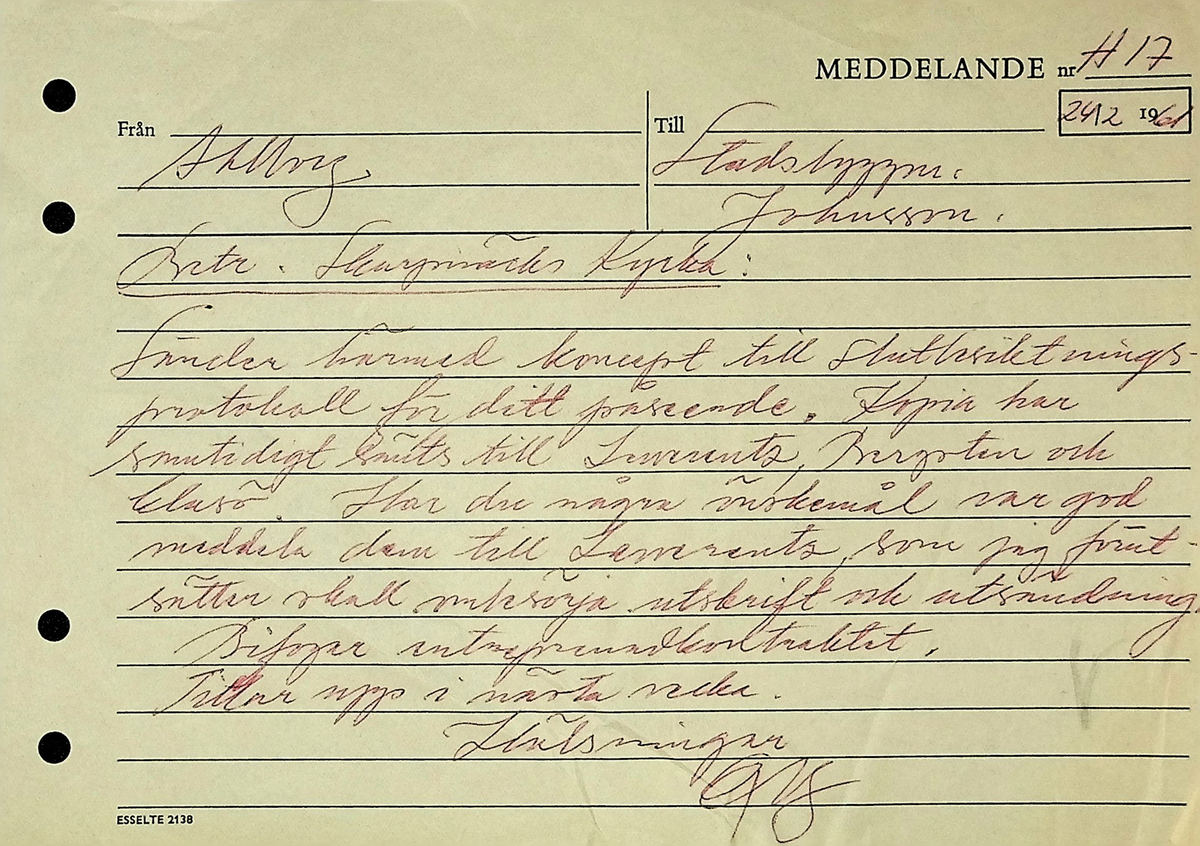 MEDDELANDE nr H 17
24/2 1961
Från Ahlborg.
Till Stadsbyggm.
Johnsson.
Betr. Skarpnäcks Kyrka:
Sänder härmed koncept till slutbesiktnings-
protokoll för ditt påseende. Kopia har
samtidigt sänts till Lewerentz, Bergsten och
Har du några önskemål var god
meddela dem till Lewerentz, som jag förut-
sätter skall ombesörja utskrift och utsändning
Bifogar entreprenadkontraktet.
Tittar upp i nästa vecka.
Hälsningar
ESSELTE 2138